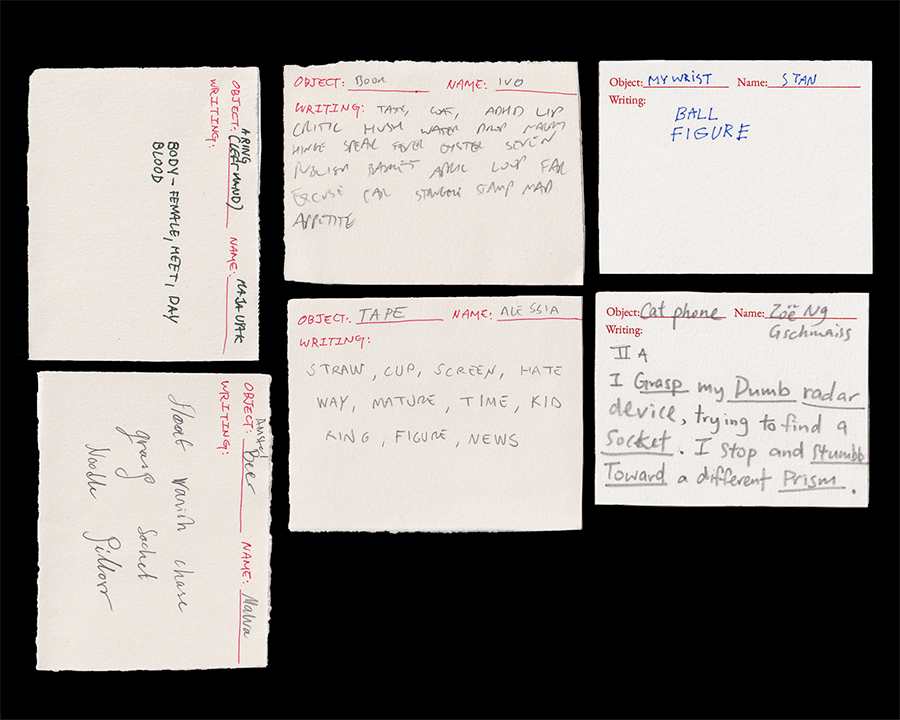 OBJECT: A RING
(LEFT HAND) NAME: MAJA UPAK
WRITING:
BODY – FEMALE, MEET, DAY
BLOOD
OBJECT: Amstel
Beer NAME: Malwa
WRITING:
float vanish chase
grasp socket
Noodle
OBJECT: BOOK NAME: IVO
WRITING: TAXI, ADHD LIP
CRITIC HUSH WATER DROP
HINGE SPEAK FEVER OYSTER SEVEN
PUBLISH BASKET APRIL LOUP FAR
EXCUSE EAR STRUGGLE STAMP MAD
APPETITE
OBJECT: TAPE NAME: ALESSIA
WRITING:
STRAW, CUP, SCREEN, HATE
WAY, MATURE, TIME, KID
RING, FIGURE, NEWS
Object: MY WRIST Name: STAN
Writing:
BALL
FIGURE
Object: Cat phone Name: Zoë Ng
Gschmaiss
Writing:
II A
I Grasp my Dumb radar
device, trying to find a
Socket. I stop and Stumble
Toward a different Prism.